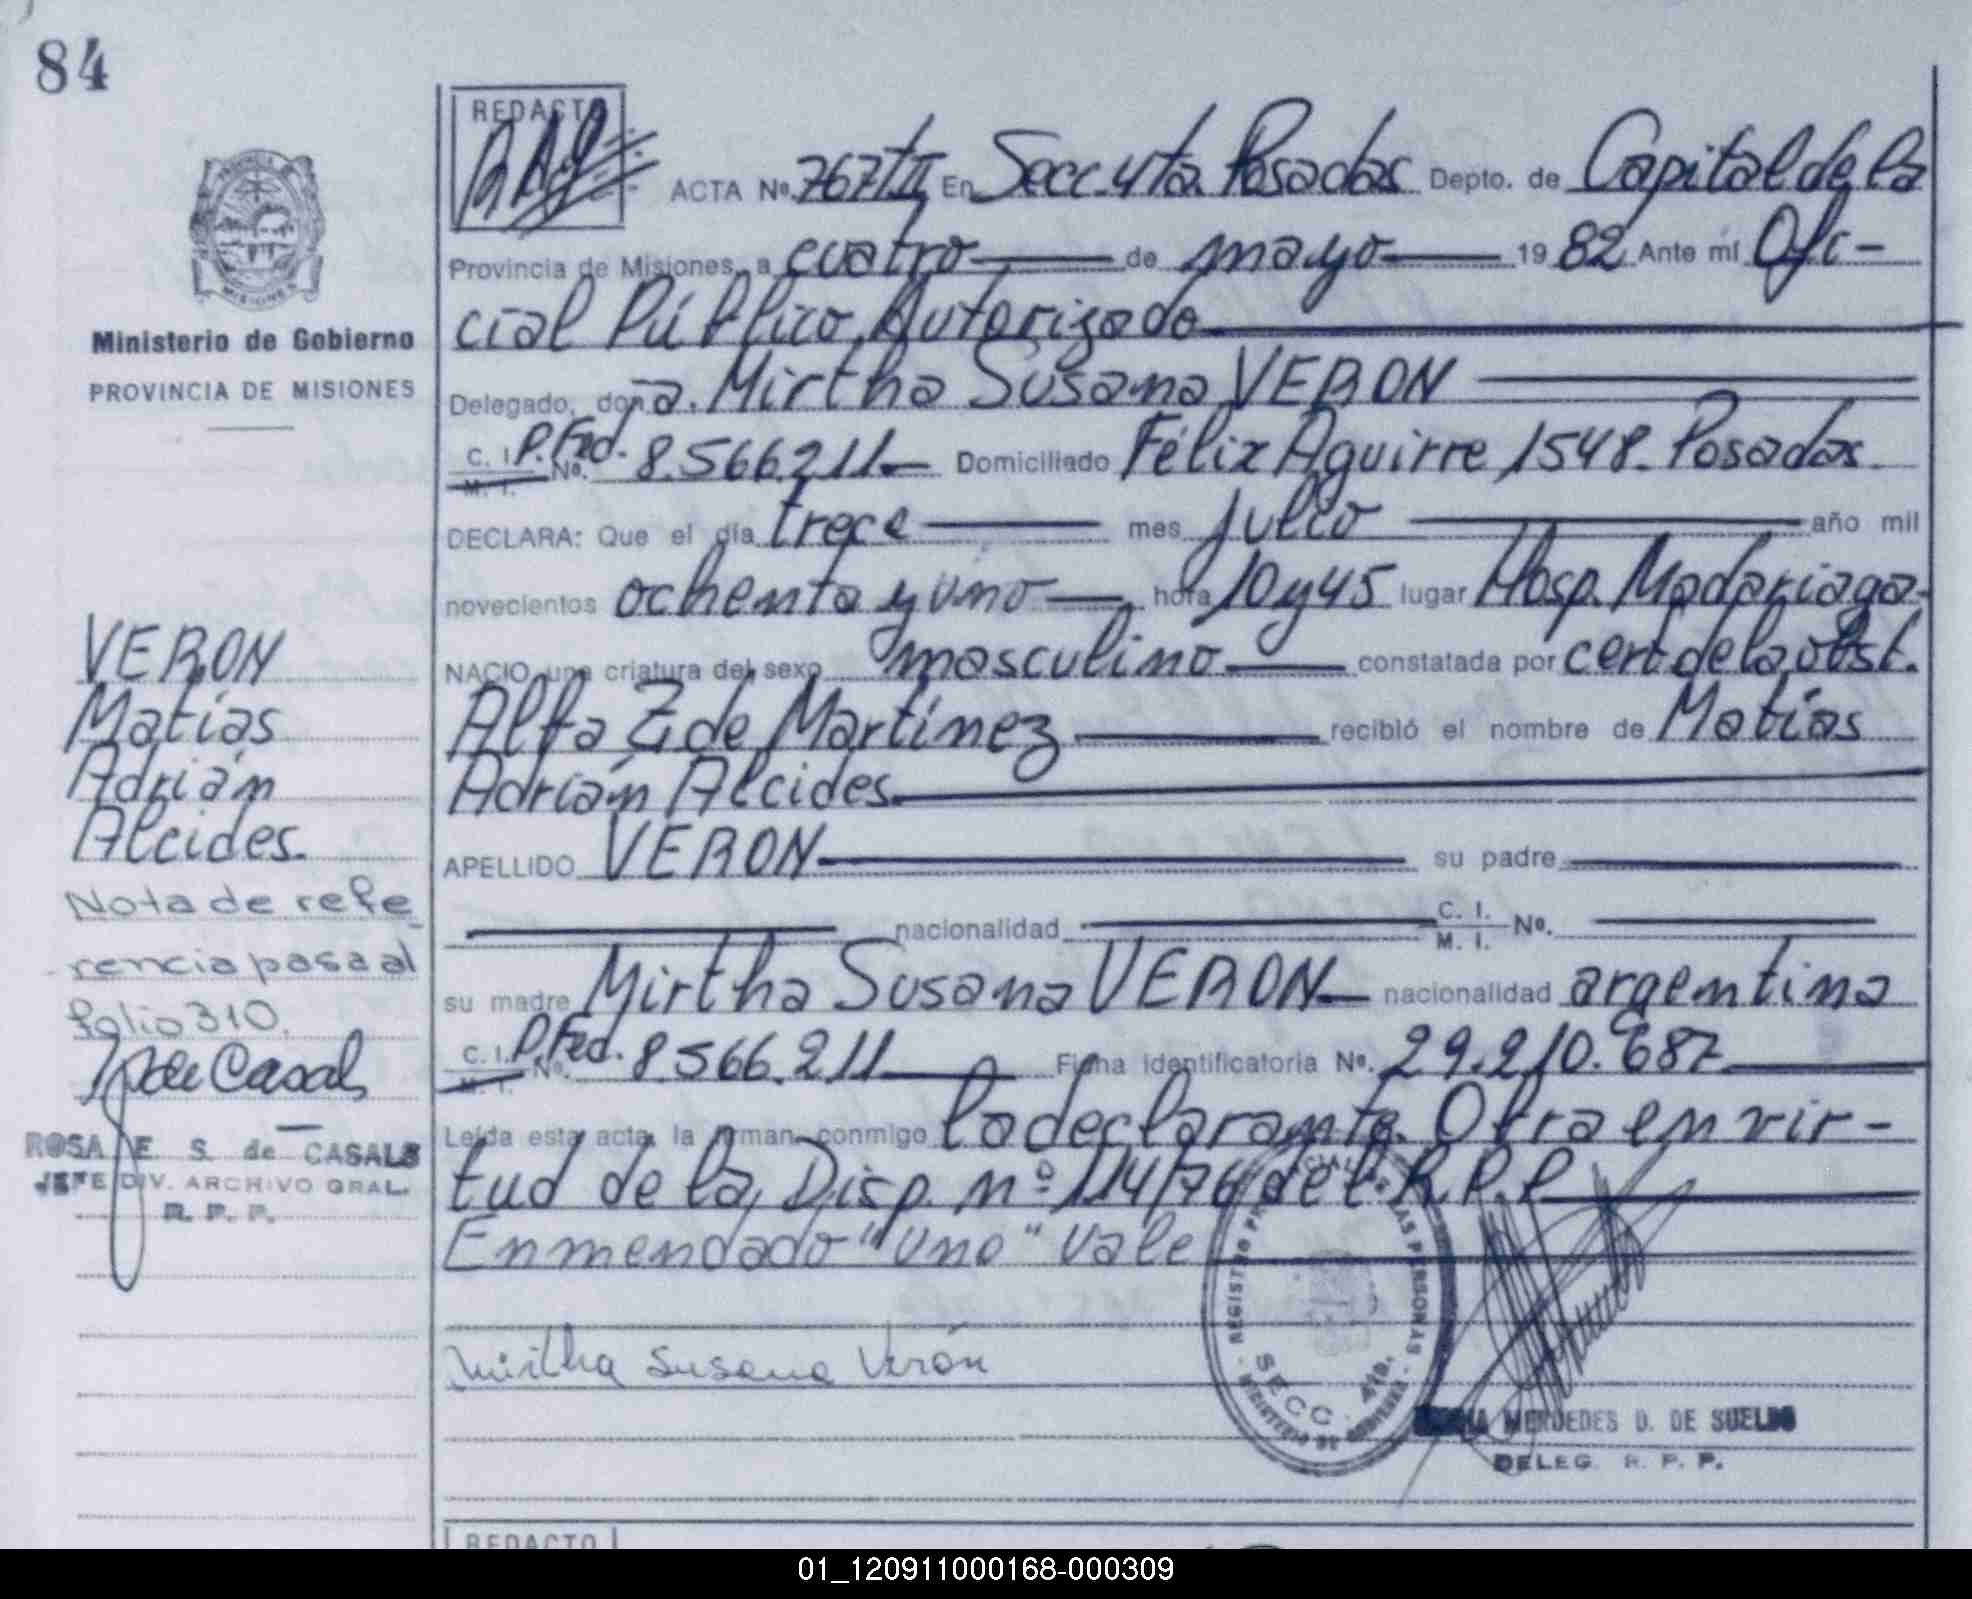 84
REDACTO
ACTA Nº 767/TII En Secc. 4ta. Posadas Depto. de Capital de la
Provincia de Misiones, a cuatro de mayo 1982 Ante mí Ofi-
cial Público Autorizado
Delegado, doña. Mirtha Susana VERON
C. I. P. Fed. Nº. 8.566.211 Domiciliado Félix Aguirre 1548. Posadas
M. I.
DECLARA: Que el día trece mes julio año mil
novecientos ochenta y uno hora 10 y 45 lugar Hosp. Madariaga.
NACIO una criatura del sexo masculino constatada por cert. de la obst.
Alfa Z. de Martínez recibió el nombre de Matías
Adrián Alcides
APELLIDO VERON su padre
nacionalidad C. I. M. I. Nº.
su madre Mirtha Susana VERON nacionalidad argentina
C. I. P. Fed. Nº. 8.566.211 Ficha identificatoria Nº. 29.210.687
M. I.
Leída esta acta, la firman conmigo la declarante. Obra en vir-
tud de la Disp. nº 114/76 del R.P.P.
Enmendado "uno" Vale
Mirtha Susana Verón
REGISTRO PROVINCIAL DE LAS PERSONAS
SECC. 4ta.
MINISTERIO DE GOBIERNO
MERCEDES D. DE SUELDO
DELEG. R. P. P.
REDACTO
PROVINCIA
MISIONES
Ministerio de Gobierno
PROVINCIA DE MISIONES
VERON
Matías
Adrián
Alcides.
Nota de refe
rencia pasa al
folio 310.
de Casals
ROSA E. S. de CASALS
JEFE DIV. ARCHIVO GRAL.
R. P. P.
01_120911000168-000309